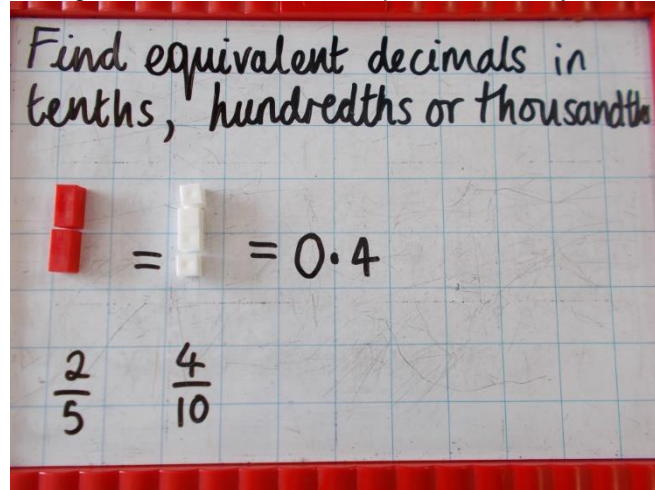 Find equivalent decimals in
tenths, hundredths or thousandths
= = 0·4
2/5 4/10